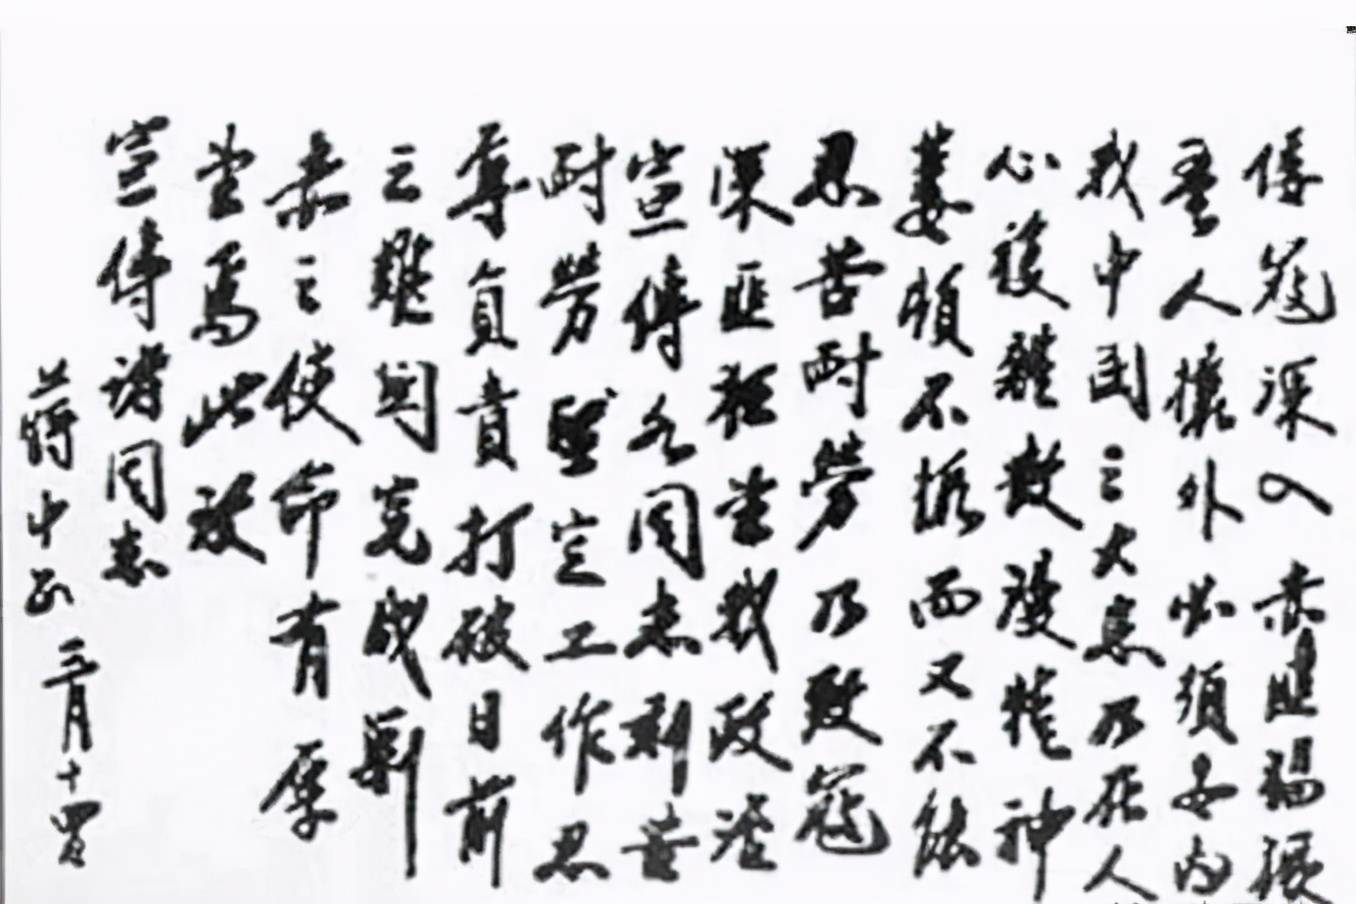 倭寇深入赤匪猖獗
吾人攘外必須安内
我中国之大患乃在人
心複雜散漫精神
萎頓不振而又不能
忍苦耐勞乃致寇
深匪猖望我政治
宣傳各同志刻苦
耐勞堅定工作忍
辱負責打破目前
之難関完成剿
赤之使命有厚
望焉此致
宣傳諸同志
蔣中正 三月十四日